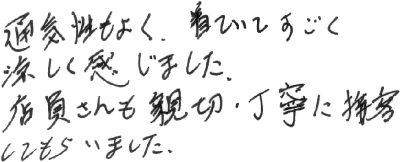 通気性もよく、着ていてすごく
涼しく感じました。
店員さんも親切・丁寧に接客
してもらいました。